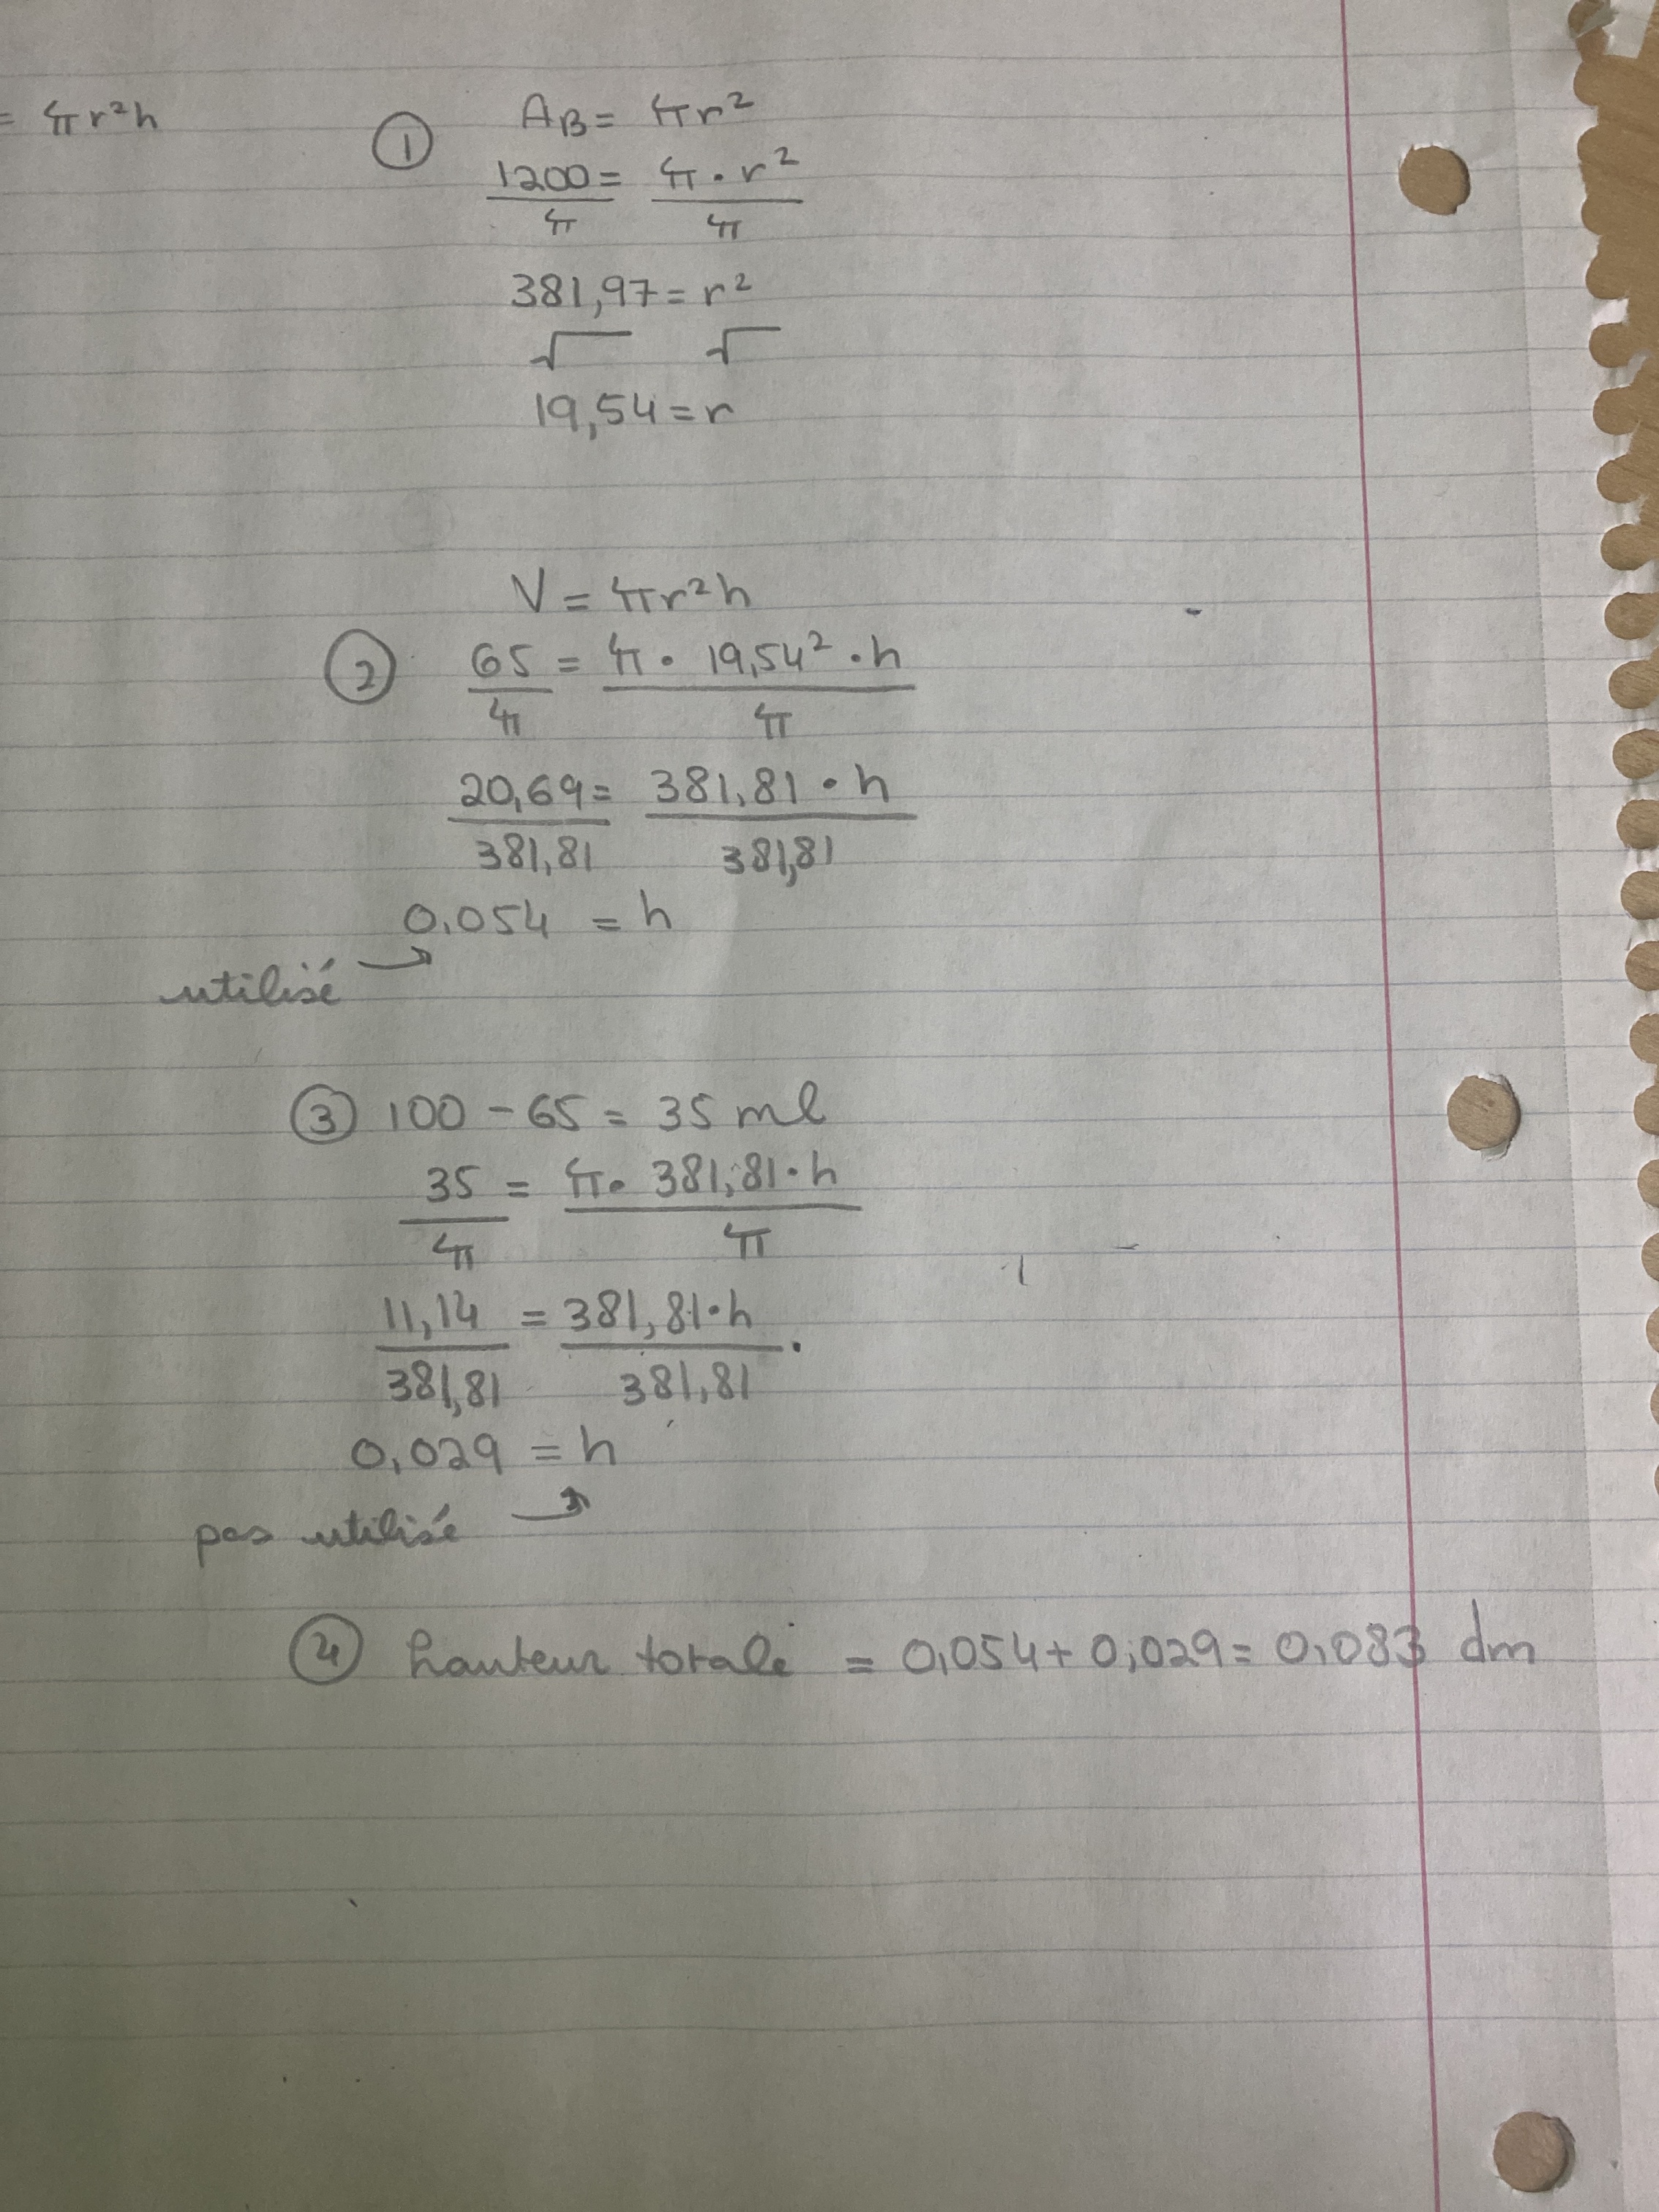 = πr²h
① A_B = πr²
1200 = π · r²
π π
381,97 = r²
√ √
19,54 = r
V = πr²h
② 65 = π · 19,54² · h
π π
20,69 = 381,81 · h
381,81 381,81
0,054 = h
utilisé
③ 100 - 65 = 35 ml
35 = π · 381,81 · h
π π
11,14 = 381,81 · h
381,81 381,81
0,029 = h
pas utilisé
④ hauteur totale = 0,054 + 0,029 = 0,083 dm